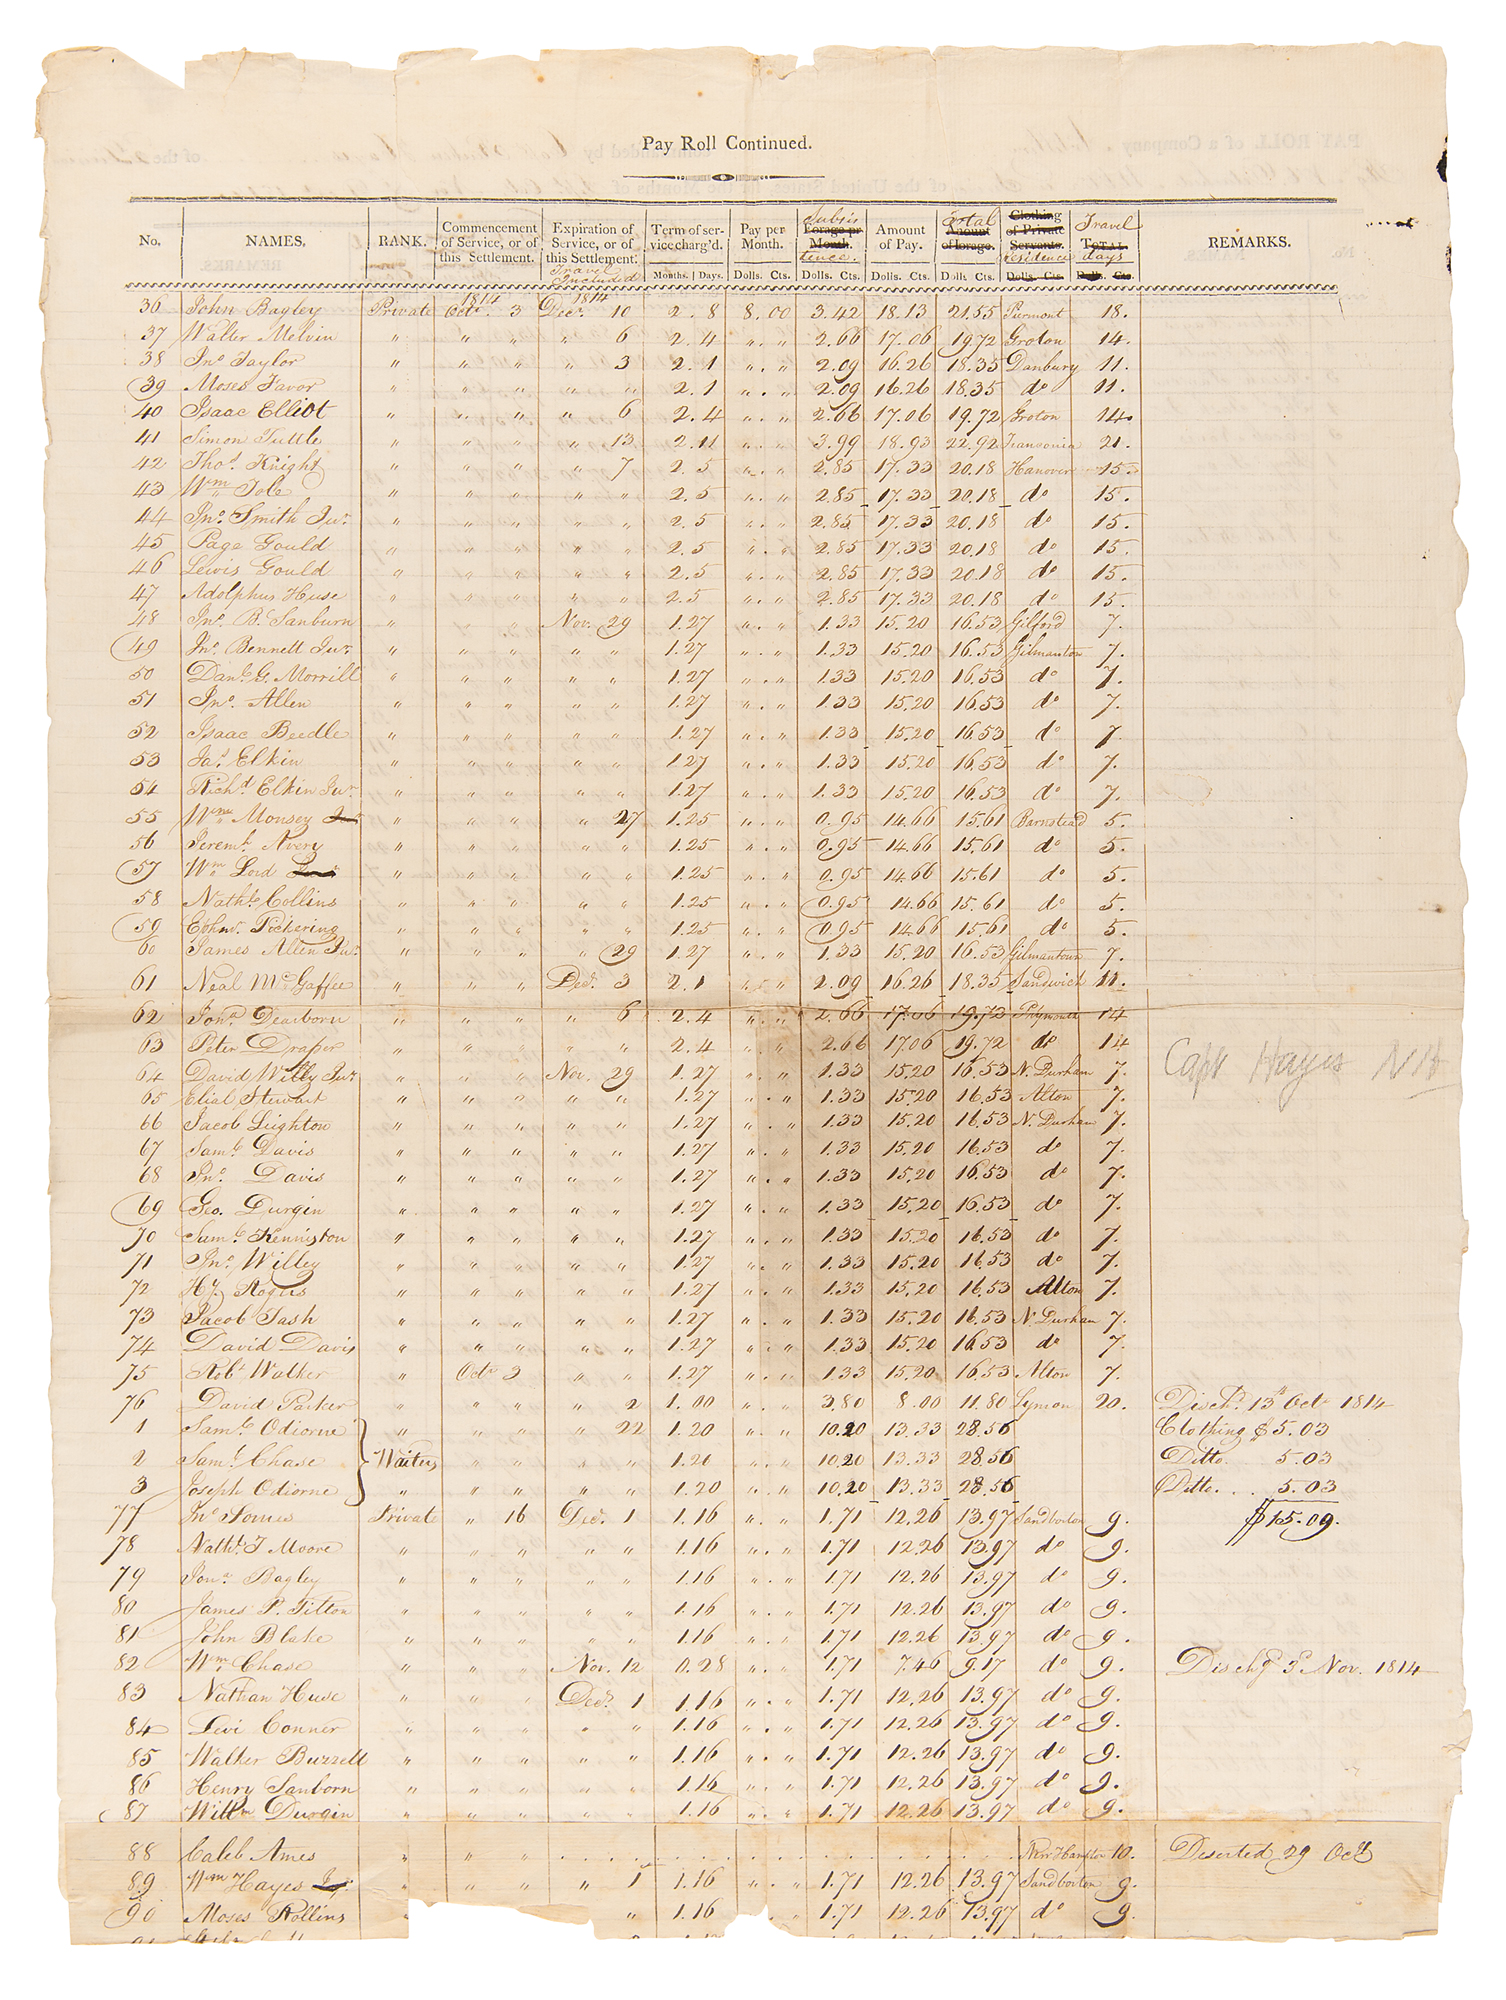 Pay Roll Continued.
No. NAMES. RANK. Commencement of Service, or of this Settlement. Expiration of Service, or of this Settlement. Travel Included Term of service charg'd. Months. Days. Pay per Month. Dolls. Cts. Subsistence. Forage pr Month. Dolls. Cts. Amount of Pay. Dolls. Cts. Total Amount of forage. Dolls. Cts. Clothing of Private Servants. residence Dolls. Cts. Travel TOTAL. days Dolls. Cts. REMARKS.
36 John Bagley Private 1814 Octr. 3 1814 Decr. 10 2.8 8.00 3.42 18.13 21.55 Piermont 18.
37 Walter Melvin " " " " 6 2.4 " . " 2.66 17.06 19.72 Groton 14.
38 Jno Taylor " " " " 3 2.1 " . " 2.09 16.26 18.35 Danbury 11.
39 Moses Favor " " " " " 2.1 " . " 2.09 16.26 18.35 do 11.
40 Isaac Elliot " " " " 6 2.4 " . " 2.66 17.06 19.72 Groton 14.
41 Simon Tuttle " " " " 13 2.11 " . " 3.99 18.93 22.92 21.
42 Thos. Knight " " " " 7 2.5 " . " 2.85 17.33 20.18 Hanover 15.
43 Wm Tole " " " " " 2.5 " . " 2.85 17.33 20.18 do 15.
44 Jno. Smith Junr. " " " " " 2.5 " . " 2.85 17.33 20.18 do 15.
45 Page Gould " " " " " 2.5 " . " 2.85 17.33 20.18 do 15.
46 Lewis Gould " " " " " 2.5 " . " 2.85 17.33 20.18 do 15.
47 Adolphus Huse " " " " " 2.5 " . " 2.85 17.33 20.18 do 15.
48 Jno. B. Sanburn " " " Nov. 29 1.27 " . " 1.33 15.20 16.53 Gilford 7.
49 Jno. Bennett Junr " " " " " 1.27 " . " 1.33 15.20 16.53 Gilmanton 7.
50 Danl. G. Morrill " " " " " 1.27 " . " 1.33 15.20 16.53 do 7.
51 Jno. Allen " " " " " 1.27 " . " 1.33 15.20 16.53 do 7.
52 Isaac Beedle " " " " " 1.27 " . " 1.33 15.20 16.53 do 7.
53 Jas. Elkin " " " " " 1.27 " . " 1.33 15.20 16.53 do 7.
54 Richd Elkin Junr. " " " " " 1.27 " . " 1.33 15.20 16.53 do 7.
55 Wm Monsey " " " " 27 1.25 " . " 0.95 14.66 15.61 Barnstead 5.
56 Jeremh. Avery " " " " " 1.25 " . " 0.95 14.66 15.61 do 5.
57 Wm Lord " " " " " 1.25 " . " 0.95 14.66 15.61 do 5.
58 Nathl. Collins " " " " " 1.25 " . " 0.95 14.66 15.61 do 5.
59 Pickering " " " " " 1.25 " . " 0.95 14.66 15.61 do 5.
60 James Allen Junr. " " " " 29 1.27 " . " 1.33 15.20 16.53 Gilmantown 7.
61 Neal McGaffee " " " Decr. 3 2.1 " . " 2.09 16.26 18.35 Sandwich 11.
62 Jona. Dearborn " " " " 6 2.4 " . " 2.66 17.06 19.72 Plymouth 14
63 Peter Draper " " " " " 2.4 " . " 2.66 17.06 19.72 do 14
64 David Willy Junr " " " Nov. 29 1.27 " . " 1.33 15.20 16.53 N. Durham 7. Capt Hayes NH
65 Elial Stewart " " " " " 1.27 " . " 1.33 15.20 16.53 Alton 7.
66 Jacob Leighton " " " " " 1.27 " . " 1.33 15.20 16.53 N. Durham 7.
67 Saml. Davis " " " " " 1.27 " . " 1.33 15.20 16.53 do 7.
68 Jno. Davis " " " " " 1.27 " . " 1.33 15.20 16.53 do 7.
69 Geo. Durgin " " " " " 1.27 " . " 1.33 15.20 16.53 do 7.
70 Saml. Kenniston " " " " " 1.27 " . " 1.33 15.20 16.53 do 7.
71 Jno. Willey " " " " " 1.27 " . " 1.33 15.20 16.53 do 7.
72 Hy. Rogers " " " " " 1.27 " . " 1.33 15.20 16.53 Alton 7.
73 Jacob Tash " " " " " 1.27 " . " 1.33 15.20 16.53 N. Durham 7.
74 David Davis " " " " " 1.27 " . " 1.33 15.20 16.53 do 7.
75 Robt Walker " Octr 3 " " 1.27 " . " 1.33 15.20 16.53 Alton 7.
76 David Parker " " " " 2 1.00 " . " 3.80 8.00 11.80 Lyman 20. Dischd. 13th Octr 1814
1 Saml. Odiorne " " " " 22 1.20 " . " 10.20 13.33 28.56 Clothing $5.03
2 Saml. Chase Waiters " " " " 1.20 " . " 10.20 13.33 28.56 Ditto. 5.03
3 Joseph Odiorne " " " " " 1.20 " . " 10.20 13.33 28.56 Ditto. . . 5.03
77 Jno Somes Private " 16 Decr. 1 1.16 " . " 1.71 12.26 13.97 Sandborton 9. $15.09.
78 Nathl. T Moore " " " " " 1.16 " . " 1.71 12.26 13.97 do 9.
79 Jona. Bagley " " " " " 1.16 " . " 1.71 12.26 13.97 do 9.
80 James P. Tilton " " " " " 1.16 " . " 1.71 12.26 13.97 do 9.
81 John Blake " " " " " 1.16 " . " 1.71 12.26 13.97 do 9.
82 Wm Chase " " " Nov. 12 0.28 " . " 1.71 7.46 9.17 do 9. Dischgd 3d Nov. 1814
83 Nathan Huse " " " Decr. 1 1.16 " . " 1.71 12.26 13.97 do 9.
84 Levi Conner " " " " " 1.16 " . " 1.71 12.26 13.97 do 9.
85 Walter Buzzell " " " " " 1.16 " . " 1.71 12.26 13.97 do 9.
86 Henry Sanborn " " " " " 1.16 " . " 1.71 12.26 13.97 do 9.
87 Willm Durgin " " " " " 1.16 " . " 1.71 12.26 13.97 do 9.
88 Caleb Ames " " " . . . . New Hampton 10. Deserted 29 Octr
89 Wm Hayes " " " " 1 1.16 " . " 1.71 12.26 13.97 Sandborton 9.
90 Moses Rollins " " 1.16 " . " 1.71 12.26 13.97 do 9.